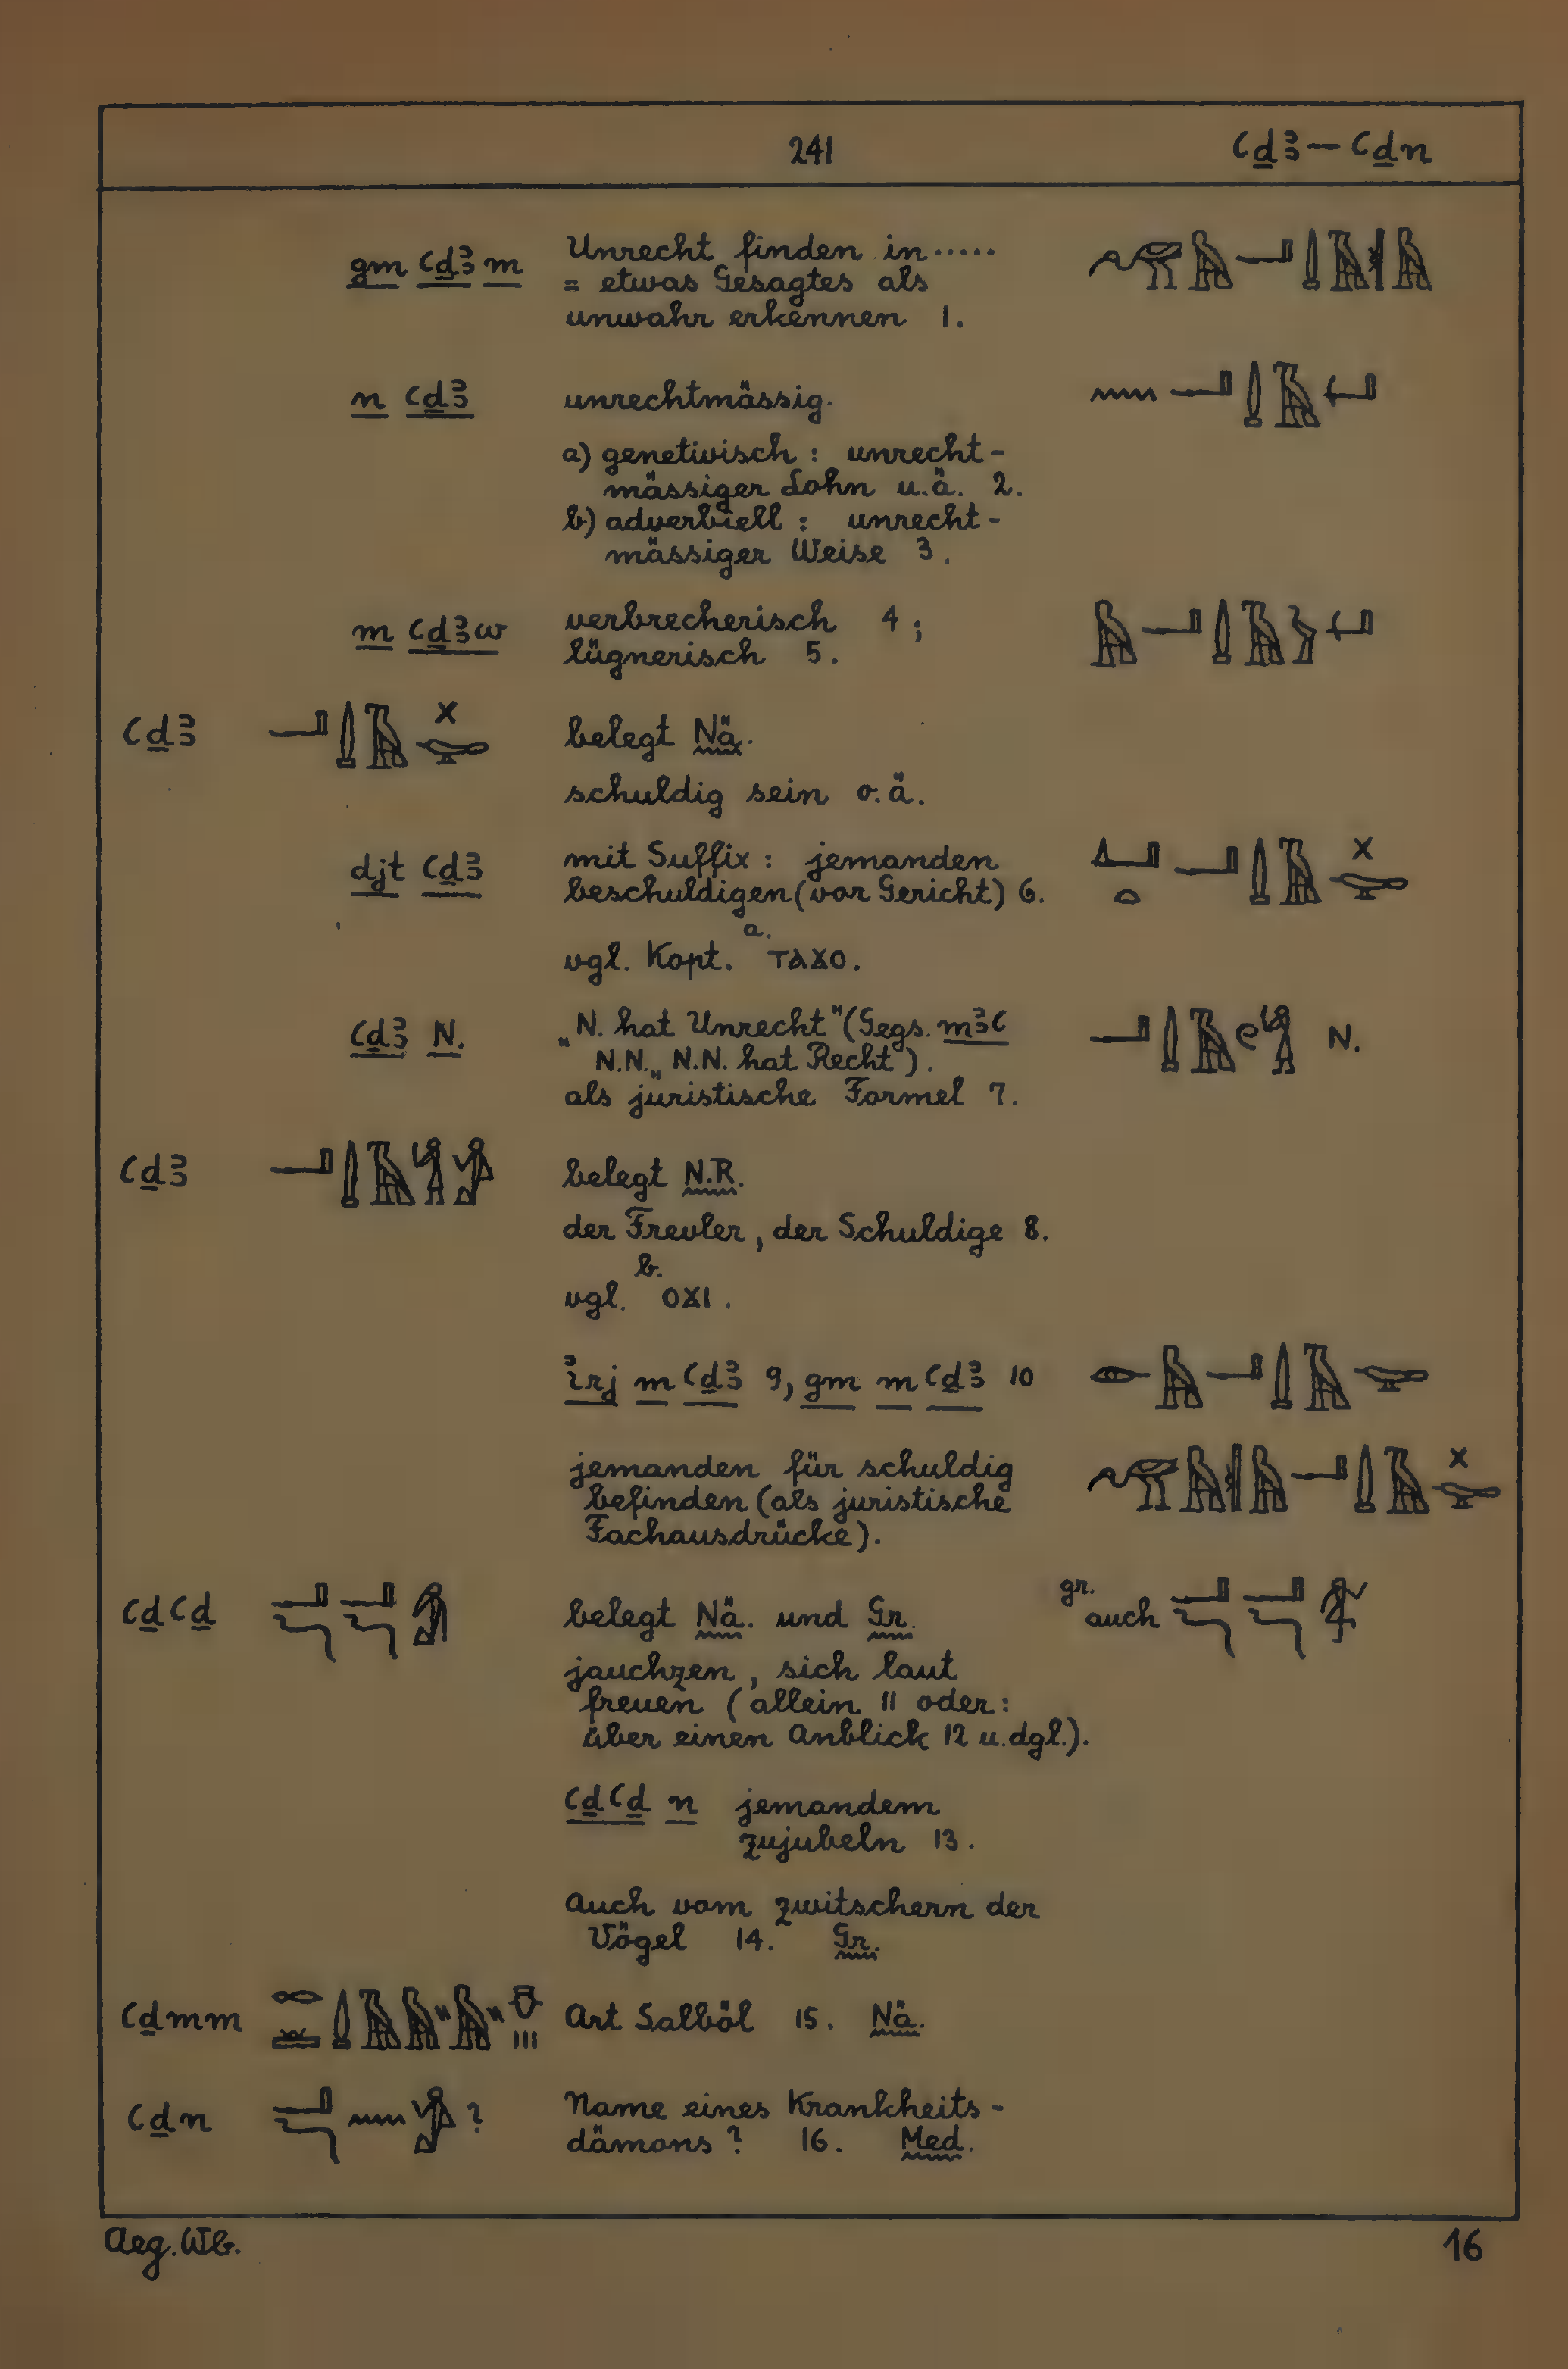 241 ꜥḏꜣ — ꜥḏn
gm ꜥḏꜣ m Unrecht finden in .....
= etwas Gesagtes als
unwahr erkennen 1.
n ꜥḏꜣ unrechtmässig.
a) genetivisch : unrecht-
mässiger Lohn u.ä. 2.
b) adverbiell : unrecht-
mässiger Weise 3.
m ꜥḏꜣw verbrecherisch 4 ;
lügnerisch 5.
ꜥḏꜣ belegt Nä.
schuldig sein o.ä.
djt ꜥḏꜣ mit Suffix : jemanden
beschuldigen (vor Gericht) 6.
a.
vgl. Kopt. ⲧⲁϫⲟ.
ꜥḏꜣ N. „N. hat Unrecht" (Gegs. mꜣꜥ N.
N.N. „N.N. hat Recht").
als juristische Formel 7.
ꜥḏꜣ belegt N.R.
der Frevler, der Schuldige 8.
b.
vgl. ⲟϫⲓ.
ꞽrj m ꜥḏꜣ 9, gm m ꜥḏꜣ 10
jemanden für schuldig
befinden (als juristische
Fachausdrücke).
ꜥḏꜥḏ belegt Nä. und Gr. gr. auch
jauchzen, sich laut
freuen (allein 11 oder:
über einen Anblick 12 u.dgl.).
ꜥḏꜥḏ n jemandem
zujubeln 13.
Auch vom Zwitschern der
Vögel 14. Gr.
ꜥḏmm Art Salböl 15. Nä.
ꜥḏn ? Name eines Krankheits-
dämons ? 16. Med.
Aeg. Wb. 16